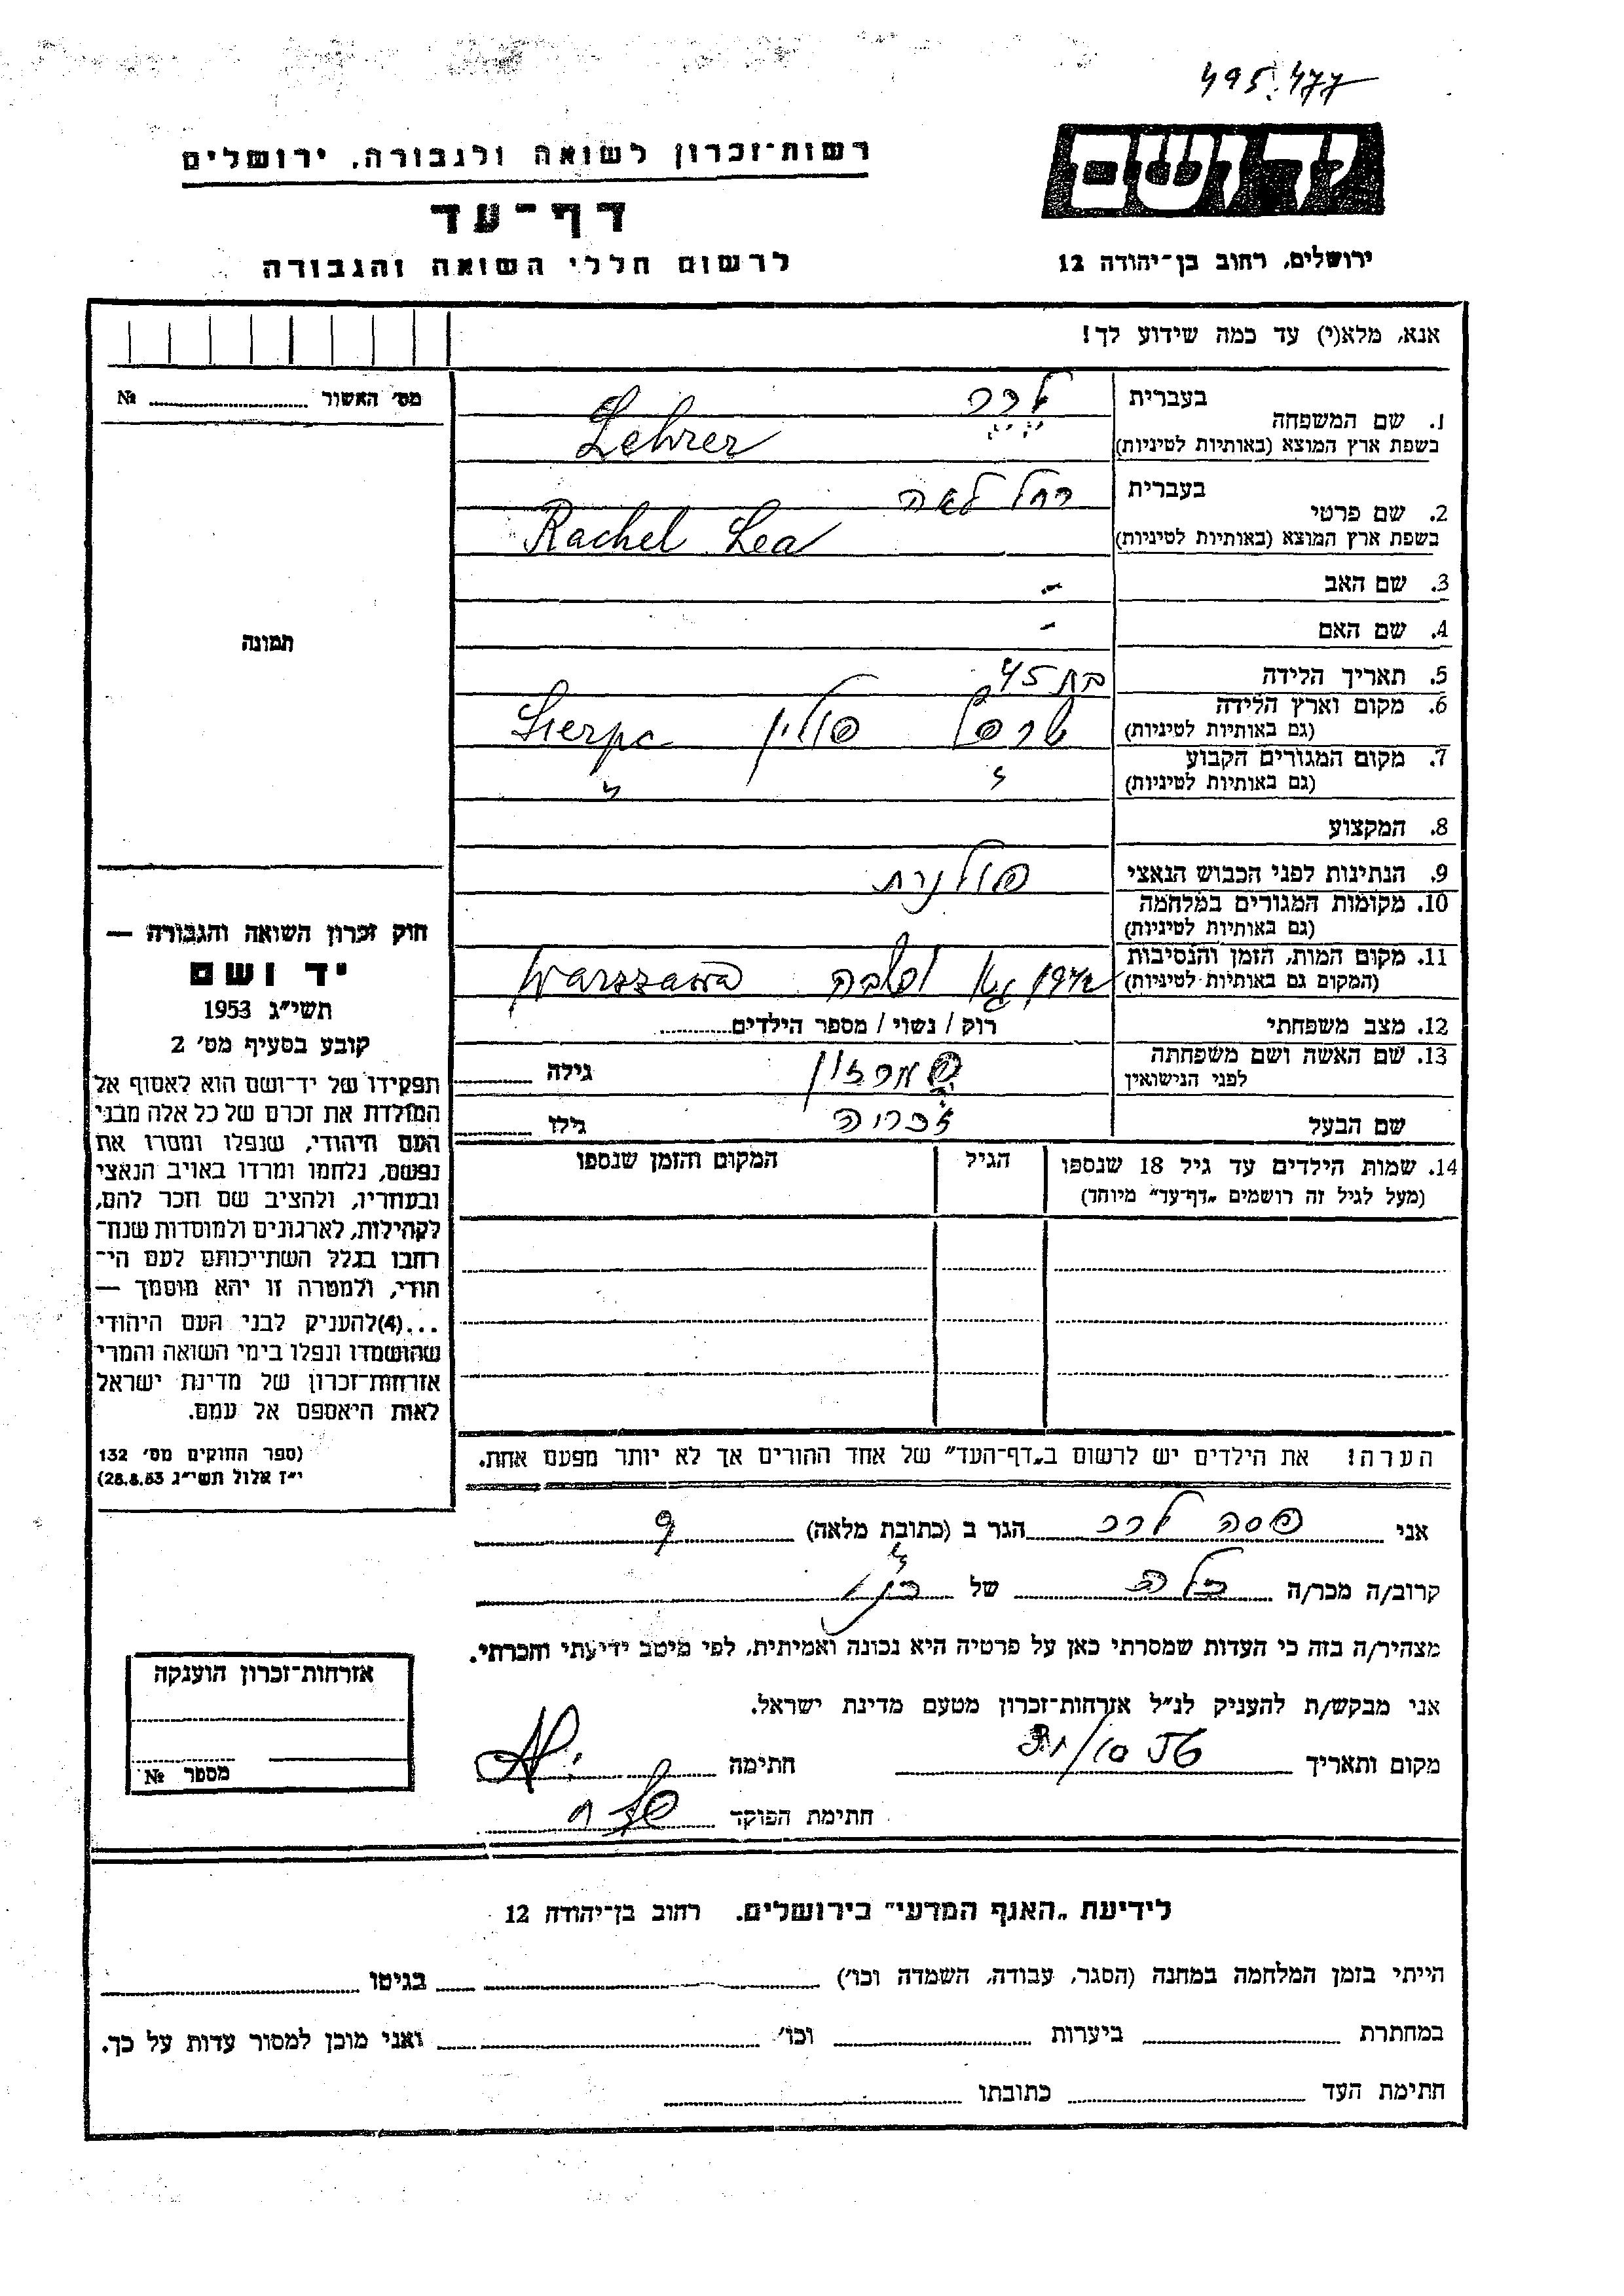 495.477
יד ושם
רשות־זכרון לשואה ולגבורה, ירושלים
דף־עד
לרשום חללי השואה והגבורה
ירושלים, רחוב בן־יהודה 12
אנא, מלא(י) עד כמה שידוע לך!
מס׳ האשור № 
1. שם המשפחה בעברית לרר
בשפת ארץ המוצא (באותיות לטיניות) Lehrer
2. שם פרטי בעברית רחל לאה
בשפת ארץ המוצא (באותיות לטיניות) Rachel Lea
3. שם האב -
4. שם האם -
תמונה
5. תאריך הלידה בת 45
6. מקום וארץ הלידה
(גם באותיות לטיניות) שרפץ פולין Sierpc
7. מקום המגורים הקבוע
(גם באותיות לטיניות)
8. המקצוע
9. הנתינות לפני הכבוש הנאצי פולנית
10. מקומות המגורים במלחמה
(גם באותיות לטיניות)
11. מקום המות, הזמן והנסיבות
(המקום גם באותיות לטיניות) Warszawa
12. מצב משפחתי רוק / נשוי / מספר הילדים
13. שם האשה ושם משפחתה
לפני הנישואין גילה
שם הבעל גילו
14. שמות הילדים עד גיל 18 שנספו
(מעל לגיל זה רושמים „דף־עד” מיוחד)
הגיל
המקום והזמן שנספו
הערה! את הילדים יש לרשום ב„דף־העד” של אחד ההורים אך לא יותר מפעם אחת.
חוק זכרון השואה והגבורה —
יד ושם
תשי״ג 1953
קובע בסעיף מס׳ 2
תפקידו של יד־ושם הוא לאסוף אל
המולדת את זכרם של כל אלה מבני
העם היהודי, שנפלו ומסרו את
נפשם, נלחמו ומרדו באויב הנאצי
ובעוזריו, ולהציב שם וזכר להם,
לקהילות, לארגונים ולמוסדות שנח־
רבו בגלל השתייכותם לעם הי־
הודי, ולמטרה זו יהא מוסמך —
...(4)להעניק לבני העם היהודי
שהושמדו ונפלו בימי השואה והמרי
אזרחות־זכרון של מדינת ישראל
לאות היאספם אל עמם.
(ספר החוקים מס׳ 132
י״ז אלול תשי״ג 28.8.53)
אני פסה לרר הגר ב (כתובת מלאה)
קרוב/ה מכר/ה כלה של
מצהיר/ה בזה כי העדות שמסרתי כאן על פרטיה היא נכונה ואמיתית, לפי מיטב ידיעתי והכרתי.
אני מבקש/ת להעניק לנ״ל אזרחות־זכרון מטעם מדינת ישראל.
מקום ותאריך חתימה
חתימת הפוקד
אזרחות־זכרון הוענקה
מספר №
לידיעת „האגף המדעי” בירושלים. רחוב בן־יהודה 12
הייתי בזמן המלחמה במחנה (הסגר, עבודה, השמדה וכו׳) בגיטו
במחתרת ביערות וכו׳ ואני מוכן למסור עדות על כך.
חתימת העד כתובתו